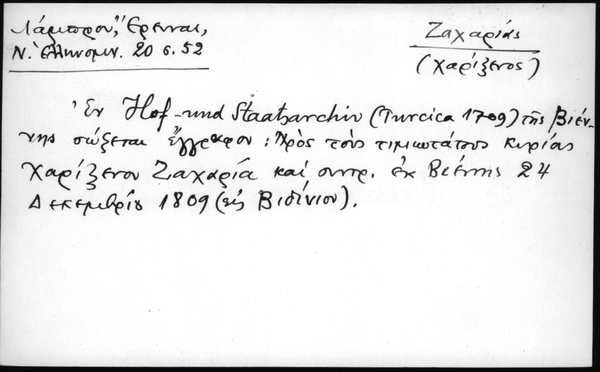 Λάμπρου, Έρευναι,
Ν. Ἑλληνομν. 20 σ. 52
Ζαχαρίας
(Χαρίξενος)
Ἐν Hof-und Staatsarchiv (Turcica 1709) τῆς Βιέν-
νης σώζεται ἔγγραφον: Πρὸς τοὺς τιμιωτάτους κυρίας
Χαρίξενον Ζαχαρία καὶ συντρ. ἐκ Βιέννης 24
Δεκεμβρίου 1809 (εἰς Βιδίνιον).